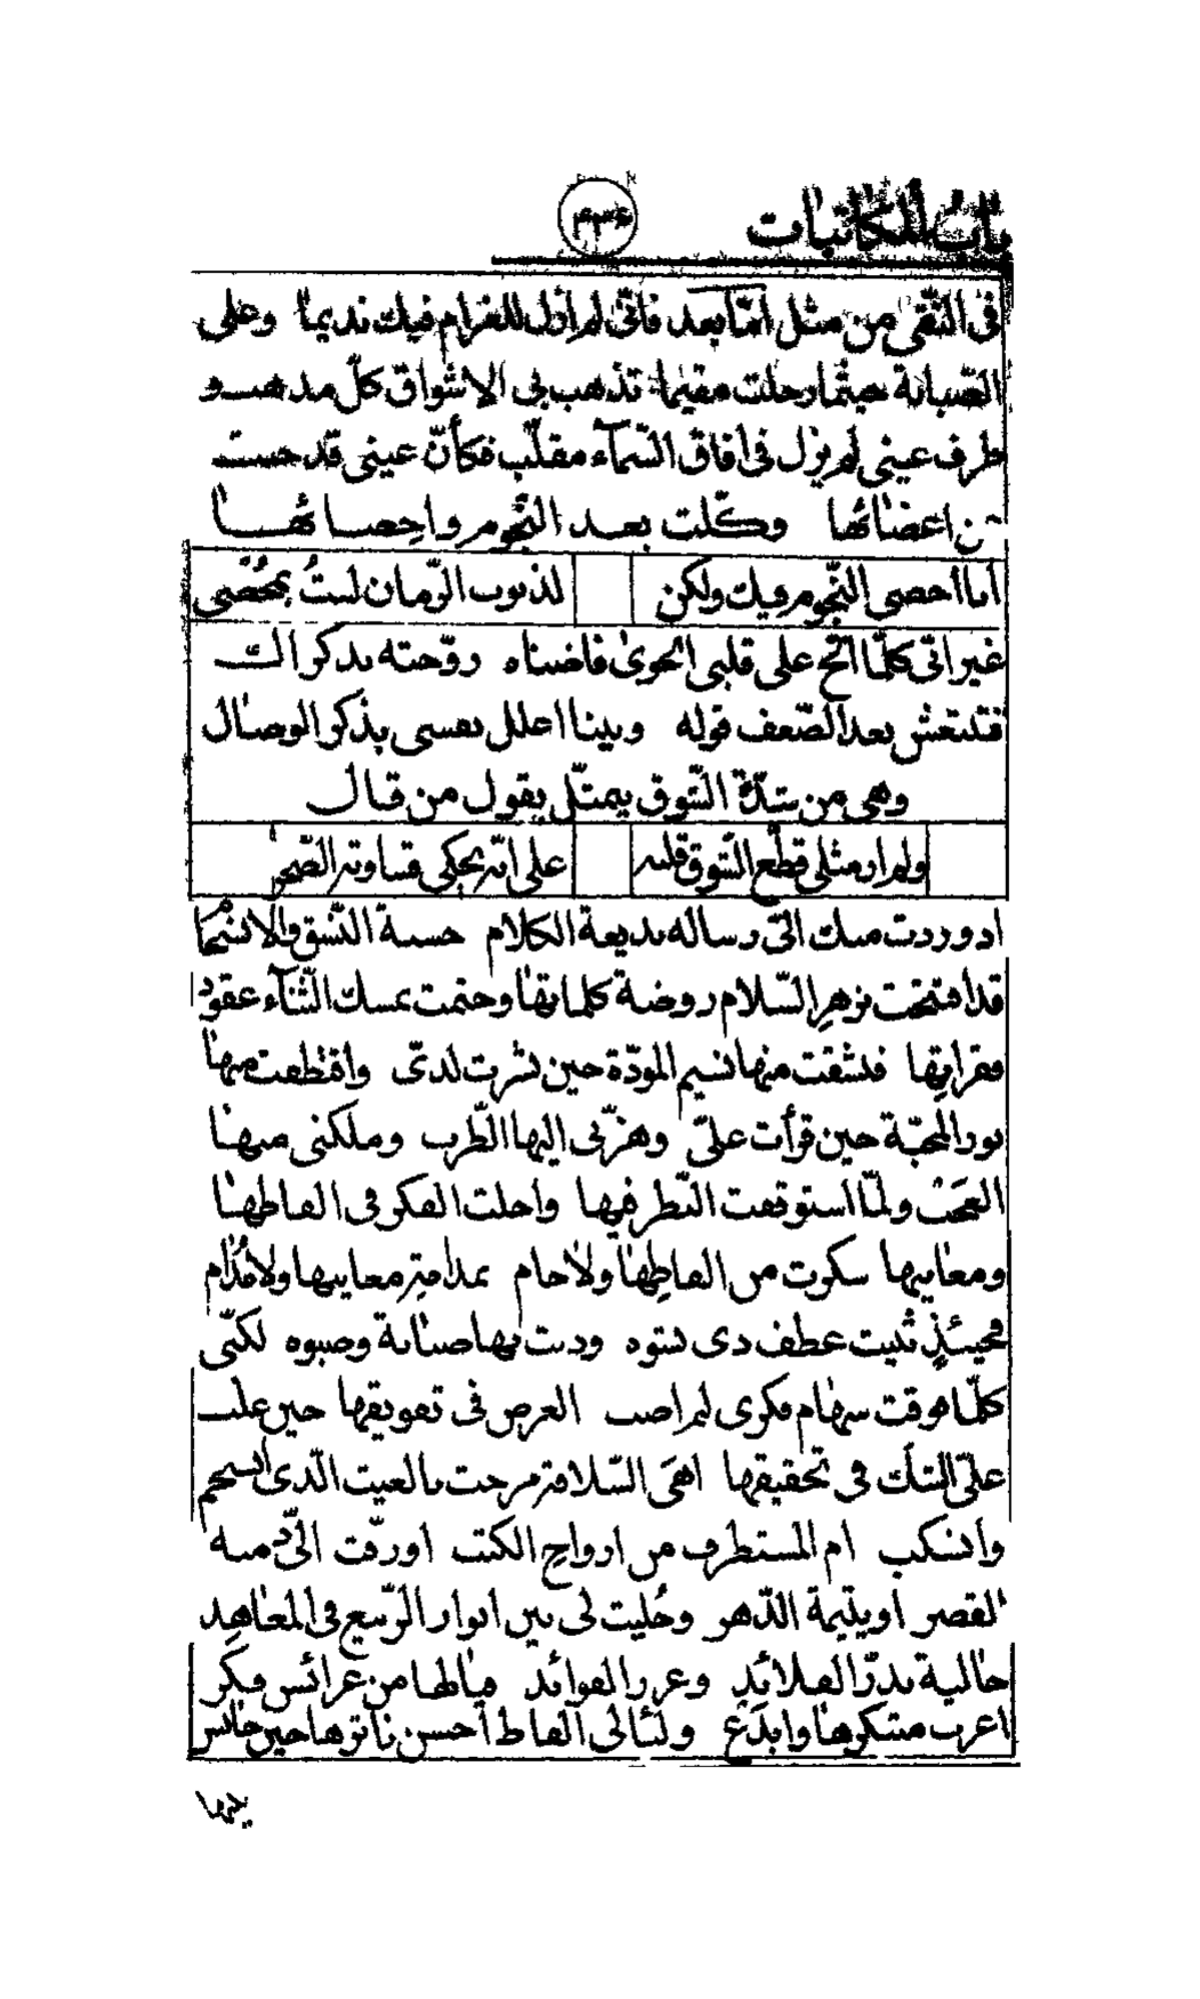 باب المكاتبات
٤٣٦
فى النّقى من مثل أمّا بعد فانّى لم أزل للغرام فيك نديما وعلى
الصّبابة حيثما رحلت مقيما تذهب بى الاشواق كلّ مذهب و
طرف عينى لم يزل فى افاق السّمآء مقلّب فكأنّ عينى قد حسبت
من اعضائها وكلّت بعد النّجوم واحصائها
أما احصى النّجوم فيك ولكن لذنوب الزّمان لستُ بمُحْصَى
غير انّى كلّما الحّ على قلبى الجوىٰ فاضناه روّحته بذكراك
فتنتعش بعد الضّعف قوله وبينا اعلل نفسى بذكر الوصال
وهى من شدّة الشّوق يمثّل بقول من قال
ولم ار مثلى قطّع الشّوق قلبه على انّه يحكى قساوته الصّخر
اذ وردت منك الىّ رسالة بديعة الكلام حسنة النّسق والانسجام
قد افتتحت بزهرِ السّلام روضة كلماتها وختمت بمسك الثّنآء عقود
فقراتِها فنشقت منها نسيم المودّة حين نشرت لدىّ واقتطفت منها
نور المحبّة حين قرأت علىّ وهزّنى اليها الطّرب وملكنى منها
العَجَب ولمّا استوقفت النّظر فيها واجلت الفكر فى الفاظها
ومعانيها سكرت من الفاظِها ولا جام بمدامةِ معانيها ولا مُدام
فحينئذٍ ثنيت عطف ذى نشوه وذبت بها صبابة وصبوه لكنّى
كلّما فوقت سهام فكرى لم اصب الغرض فى تفويقها حين غلب
علىّ الشّك فى تحقيقها اهىَ السّلافة مزجت بالغيث الّذى انسجم
وانسكب ام المستطرف من ارواحِ الكتب او زفّت الىّ دمية
القصر او يتيمة الدّهر وجُليت لى بين انوار الرّبيع فى المعاهد
حالية بدرّ القلائدِ وغرر الفوائد فيالها من عرائس فِكَر
اغرب مبتكرها وابدَع ولئالى الفاظ احسن ناثرها حين جانس